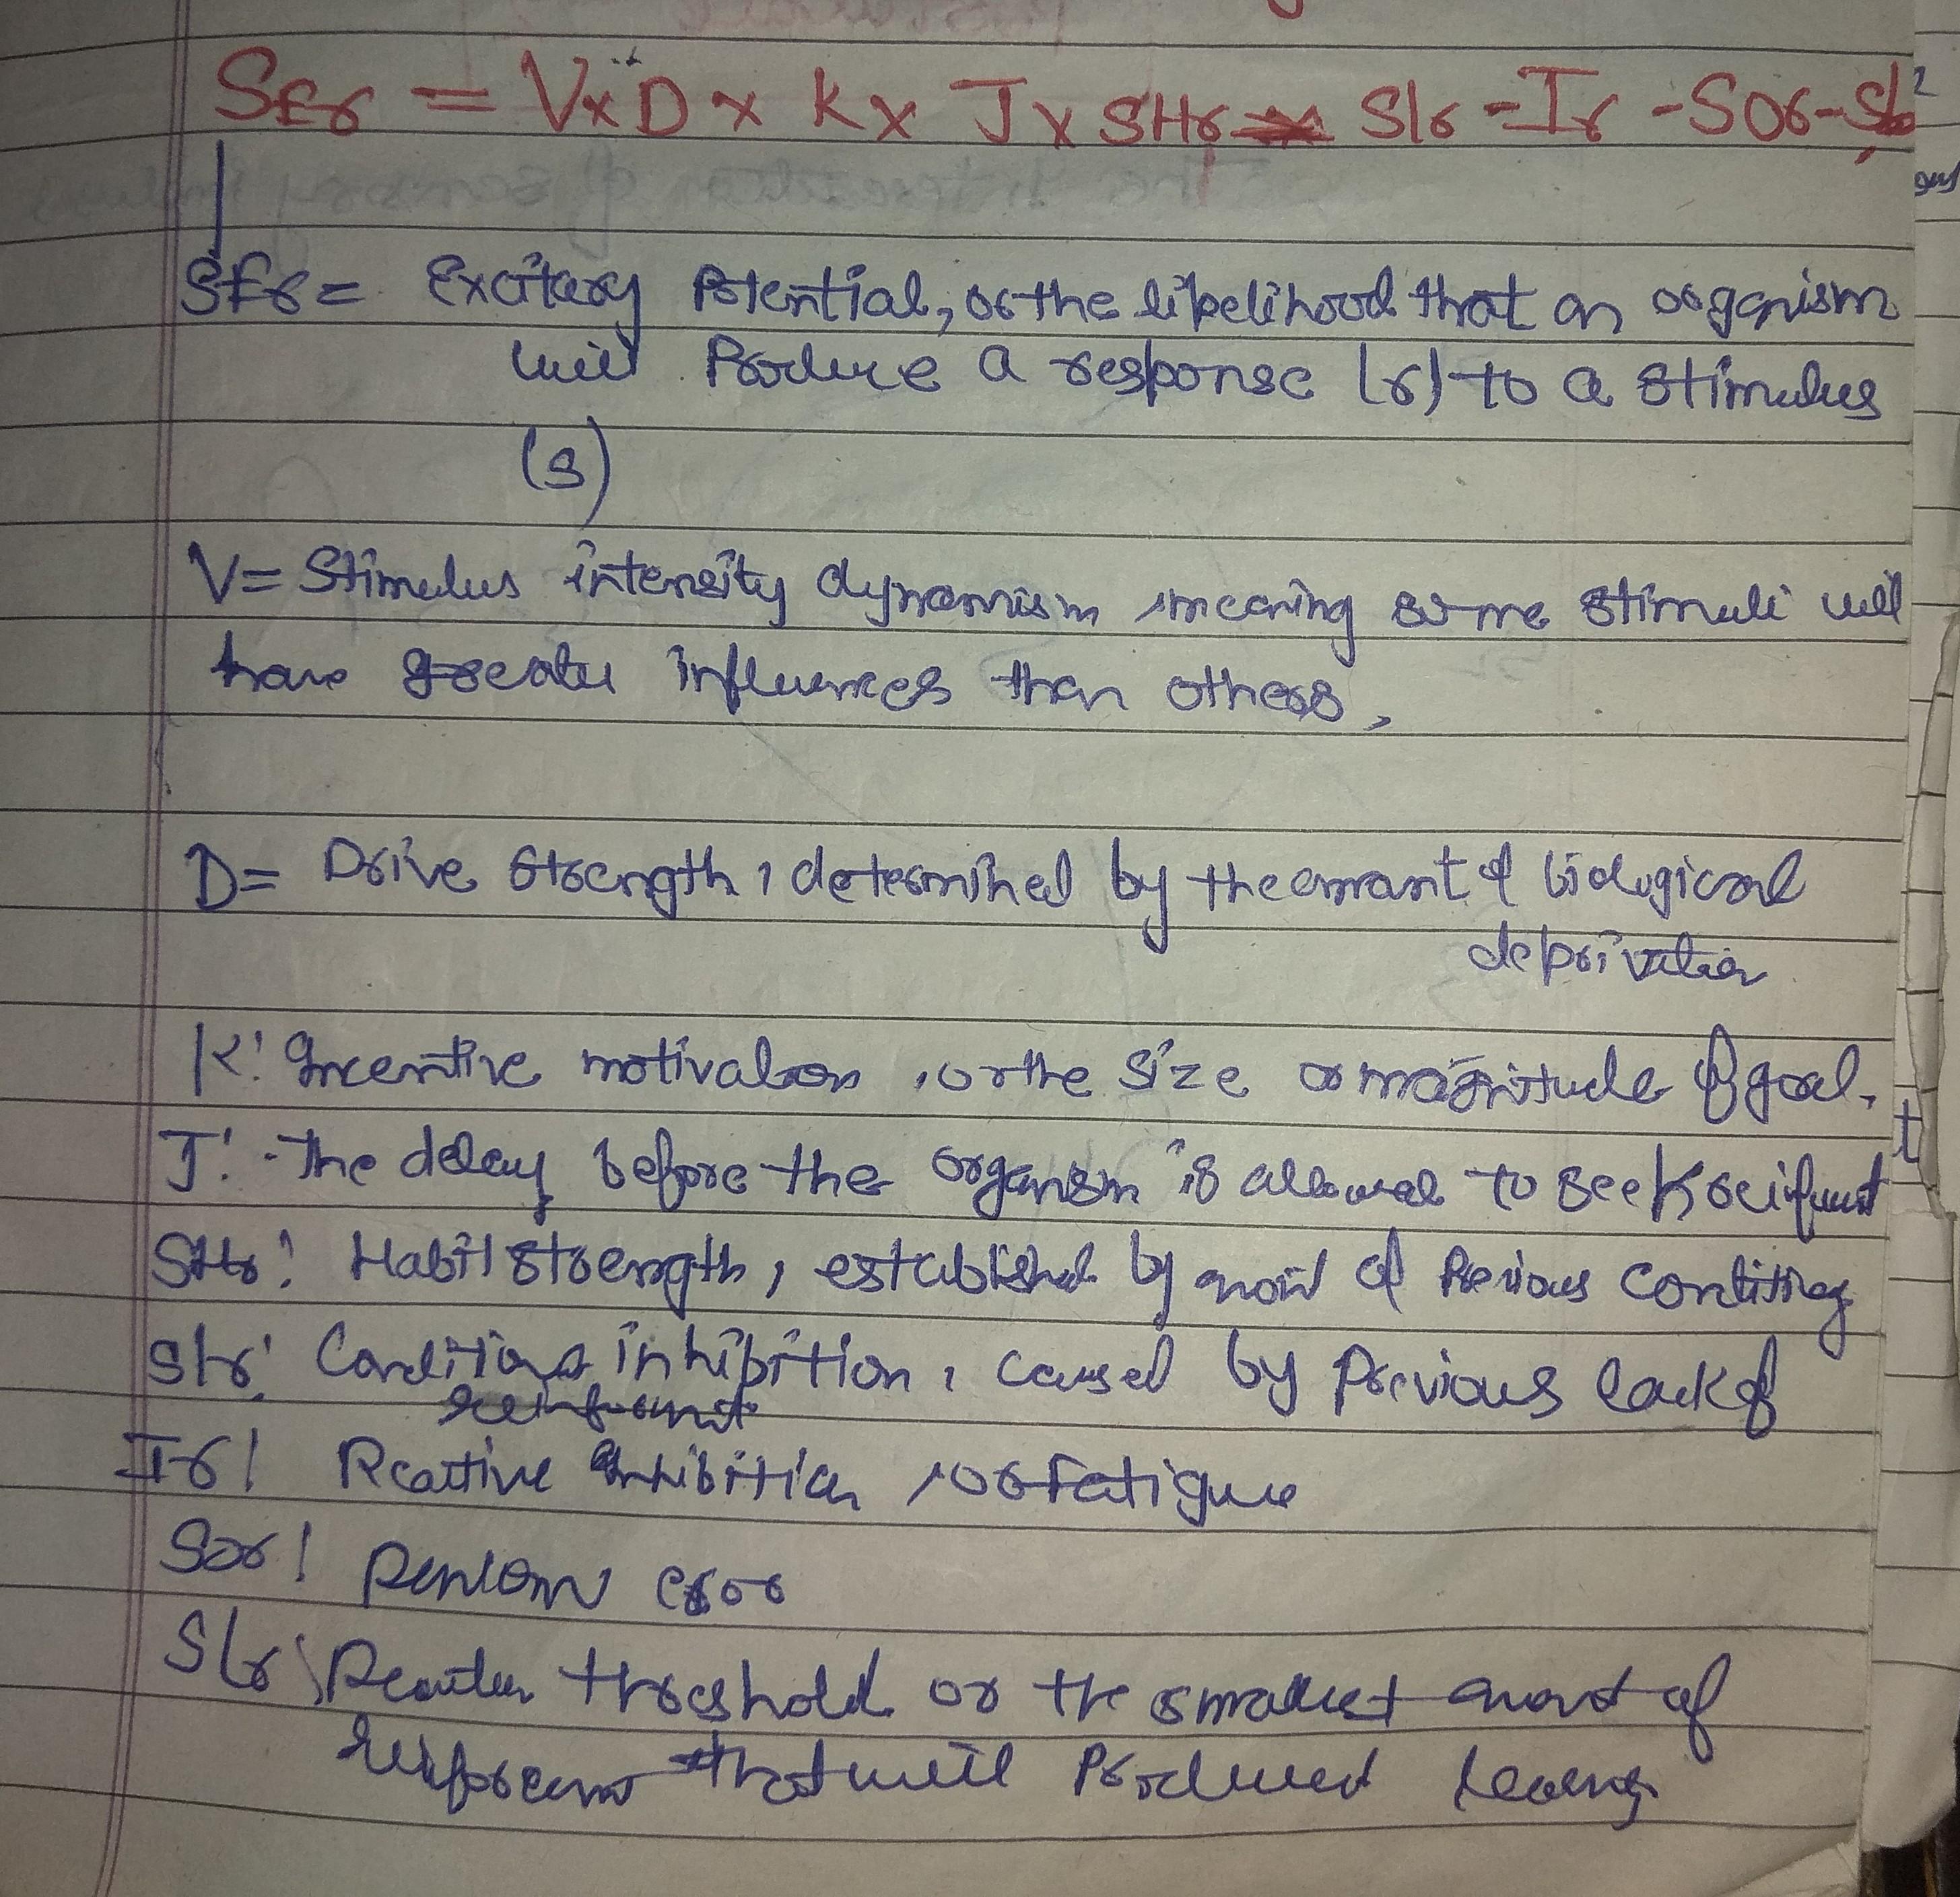 SEr = V x D x K x J x SHr - SIr - Ir - SOr - SLr
SEr = Excitary Potential, or the likelihood that an organism
will Produce a response (r) to a stimulus
(s)
V= Stimulus intensity dynamism, meaning some stimuli will
have greater influences than others,
D= Drive strength, determined by the amant of biological
deprivation
K: Incentive motivation, or the size or magnitude of goal.
J: - The delay before the organism is allowed to seek
SHr: Habit strength, established by of Previous
SIr: inhibition, caused by Previous lack of
Ir: Reactive inhibition, or Fatigue
Sor: error
SLr: threshold or the smallest of
that will Produced